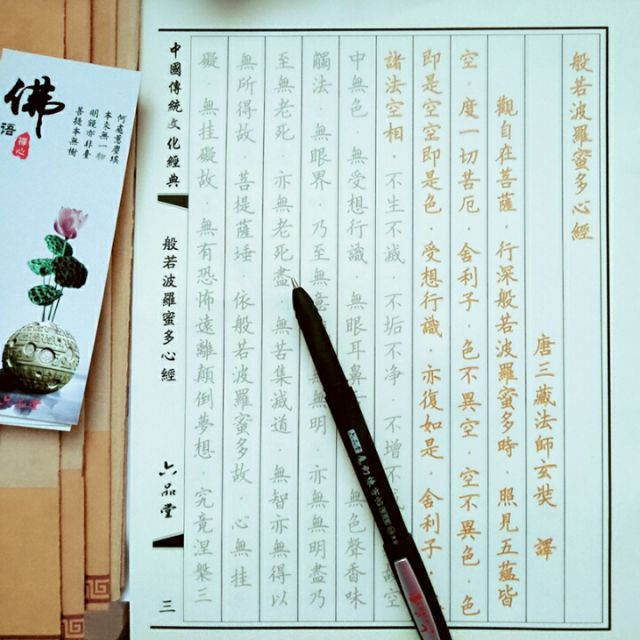 般若波羅蜜多心經
唐三藏法師玄奘 譯
觀自在菩薩·行深般若波羅蜜多時·照見五蘊皆
空·度一切苦厄·舍利子·色不異空·空不異色·色
即是空空即是色·受想行識·亦復如是·舍利子·
諸法空相·不生不滅·不垢不净·不增不
空
中無色·無受想行識·無眼耳鼻
無色聲香味
觸法·無眼界·乃至無意
無無明·亦無無明盡乃
至無老死·亦無老死盡·無苦集滅道·無智亦無得以
無所得故·菩提薩埵·依般若波羅蜜多故·心無挂
礙·無挂礙故·無有恐怖遠離顛倒夢想·究竟涅槃三
中國傳統文化經典
般若波羅蜜多心經
六品堂
三
佛
语
禪心
何處惹塵埃
本來無一物
明鏡亦非臺
菩提本無樹